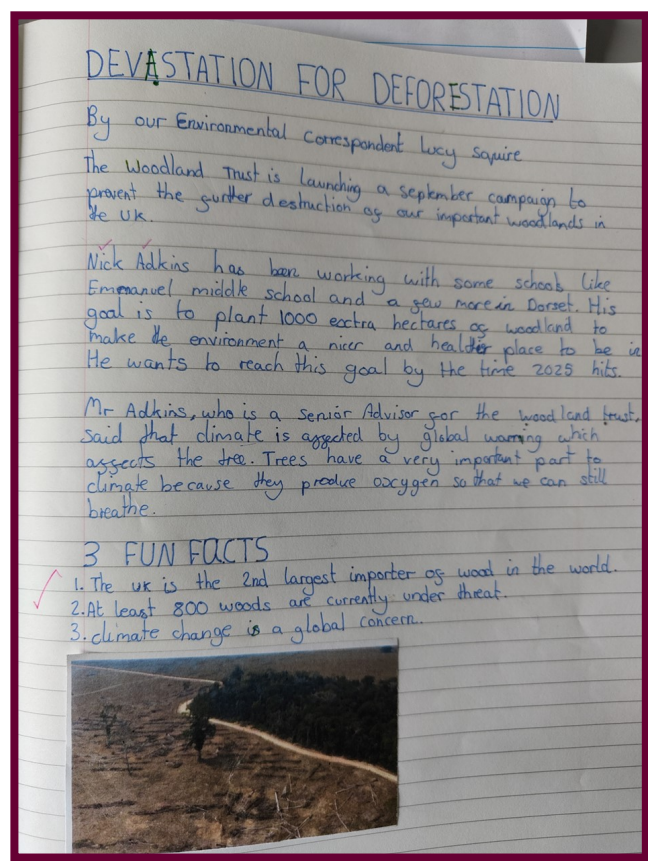 DEVASTATION FOR DEFORESTATION
By our Environmental Correspondent Lucy Squire
The Woodland Trust is launching a september campaign to
prevent the gurther destruction og our important woodlands in
the UK.
Nick Adkins has been working with some schools like
Emmanuel middle school and a gew more in Dorset. His
goal is to plant 1000 exctra hectares og woodland to
make the environment a nicer and healthier place to be in
He wants to reach this goal by the time 2025 hits.
Mr Adkins, who is a senior Advisor gor the woodland trust,
said that climate is aggected by global warming which
aggects the tree. Trees have a very important part to
climate because they produce oxygen so that we can still
breathe.
3 FUN FACTS
1. The uk is the 2nd largest importer og wood in the world.
2. At least 800 woods are currently under threat.
3. climate change is a global concern.